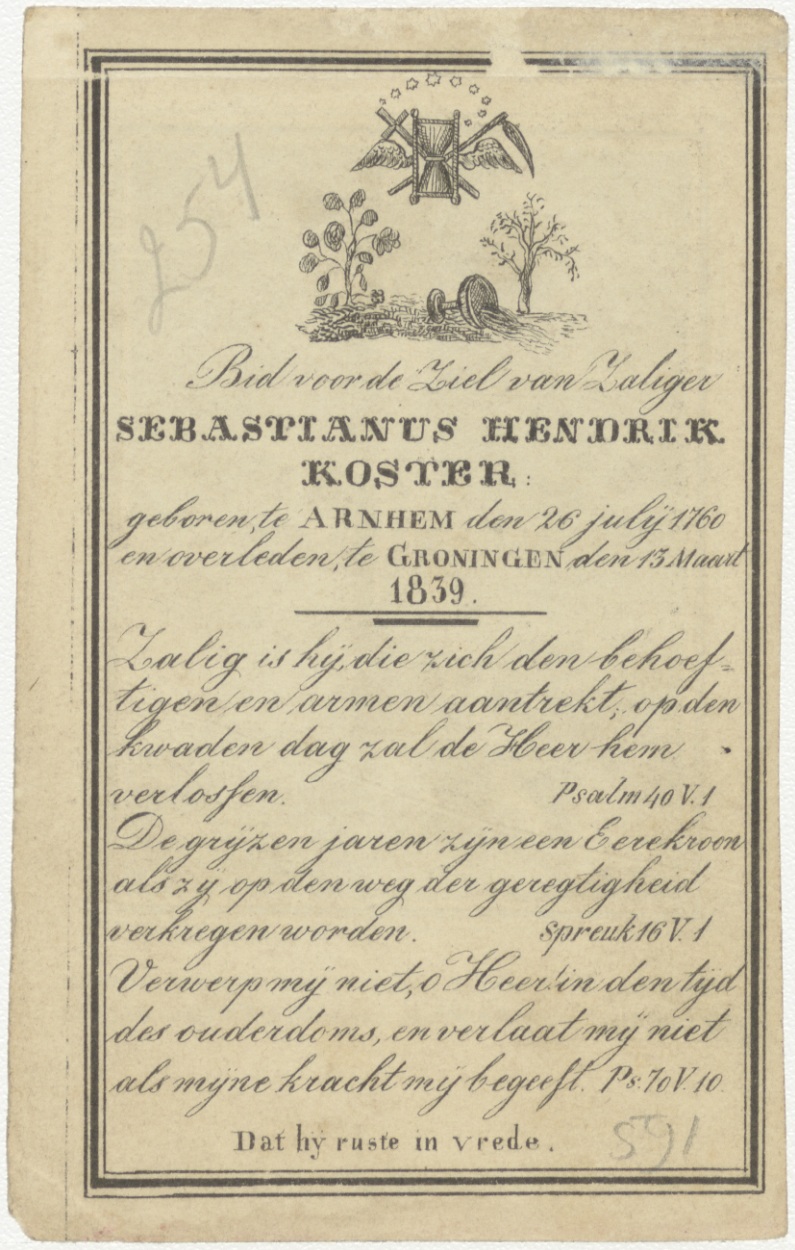 254
Bid voor de Ziel van Zaliger
SEBASTIANUS HENDRIK
KOSTER:
geboren, te ARNHEM den 26 julÿ 1760
en overleden, te GRONINGEN den 13 Maart
1839.
Zalig is hÿ, die zich den behoef=
tigen en armen aantrekt; op den
kwaden dag zal de Heer hem
verlossen. Psalm 40 V. 1
De grÿzen jaren zÿn een Eerekroon
als zÿ op den weg der geregtigheid
verkregen worden. spreuk 16 V. 1
Verwerp mÿ niet, o Heer! in den tÿd
des ouderdoms, en verlaat mÿ niet
als mÿne kracht mÿ begeeft. Ps. 70 V. 10
Dat hÿ ruste in vrede.
591